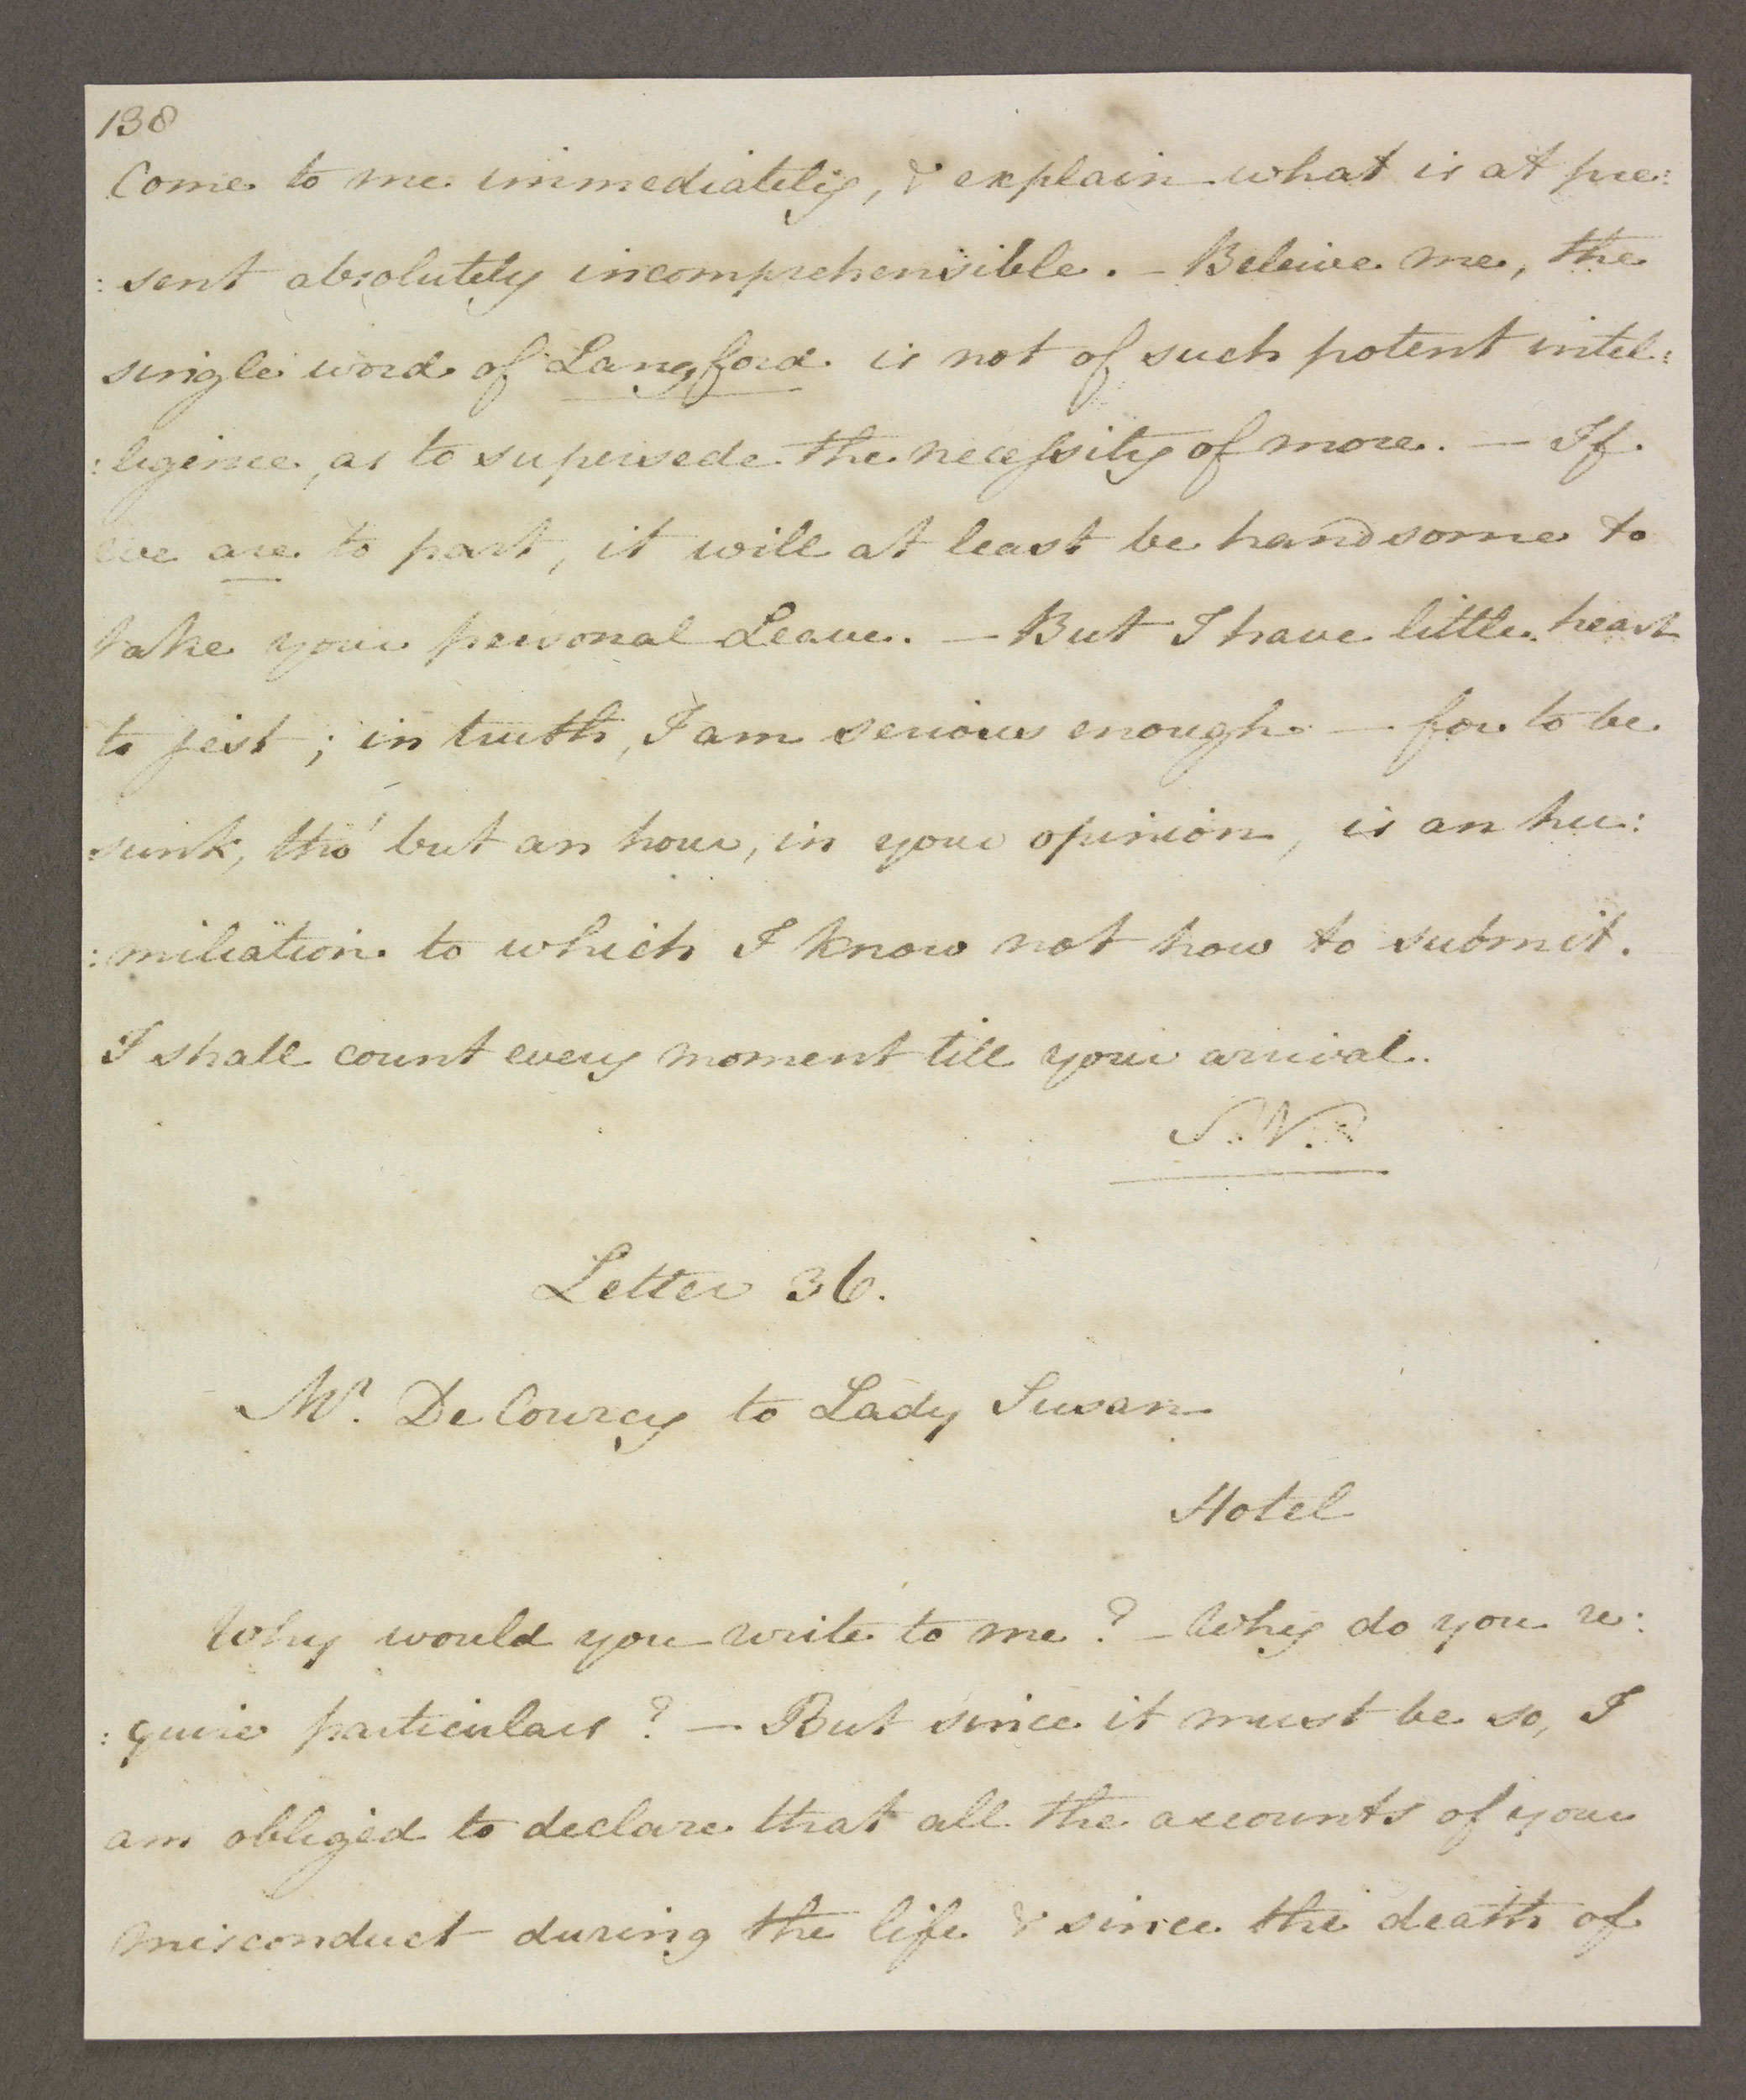 138
Come to me immediately, & explain what is at pre:
:sent absolutely incomprehensible. – Beleive me, the
single word of Langford is not of such potent intel:
:ligence, as to supersede the necessity of more. — If
we are to part, it will at least be handsome to
take your personal Leave. — But I have little heart
to jest; in truth, I am serious enough — for to be
sunk, tho' but an hour, in your opinion, is an hu:
:miliation to which I know not how to submit.
I shall count every moment till your arrival.
S. V.
Letter 36.
Mr. De Courcy to Lady Susan
Hotel
Why would you write to me? – Why do you re:
:quire particulars? — But since it must be so, I
am obliged to declare that all the accounts of your
misconduct during the life & since the death of